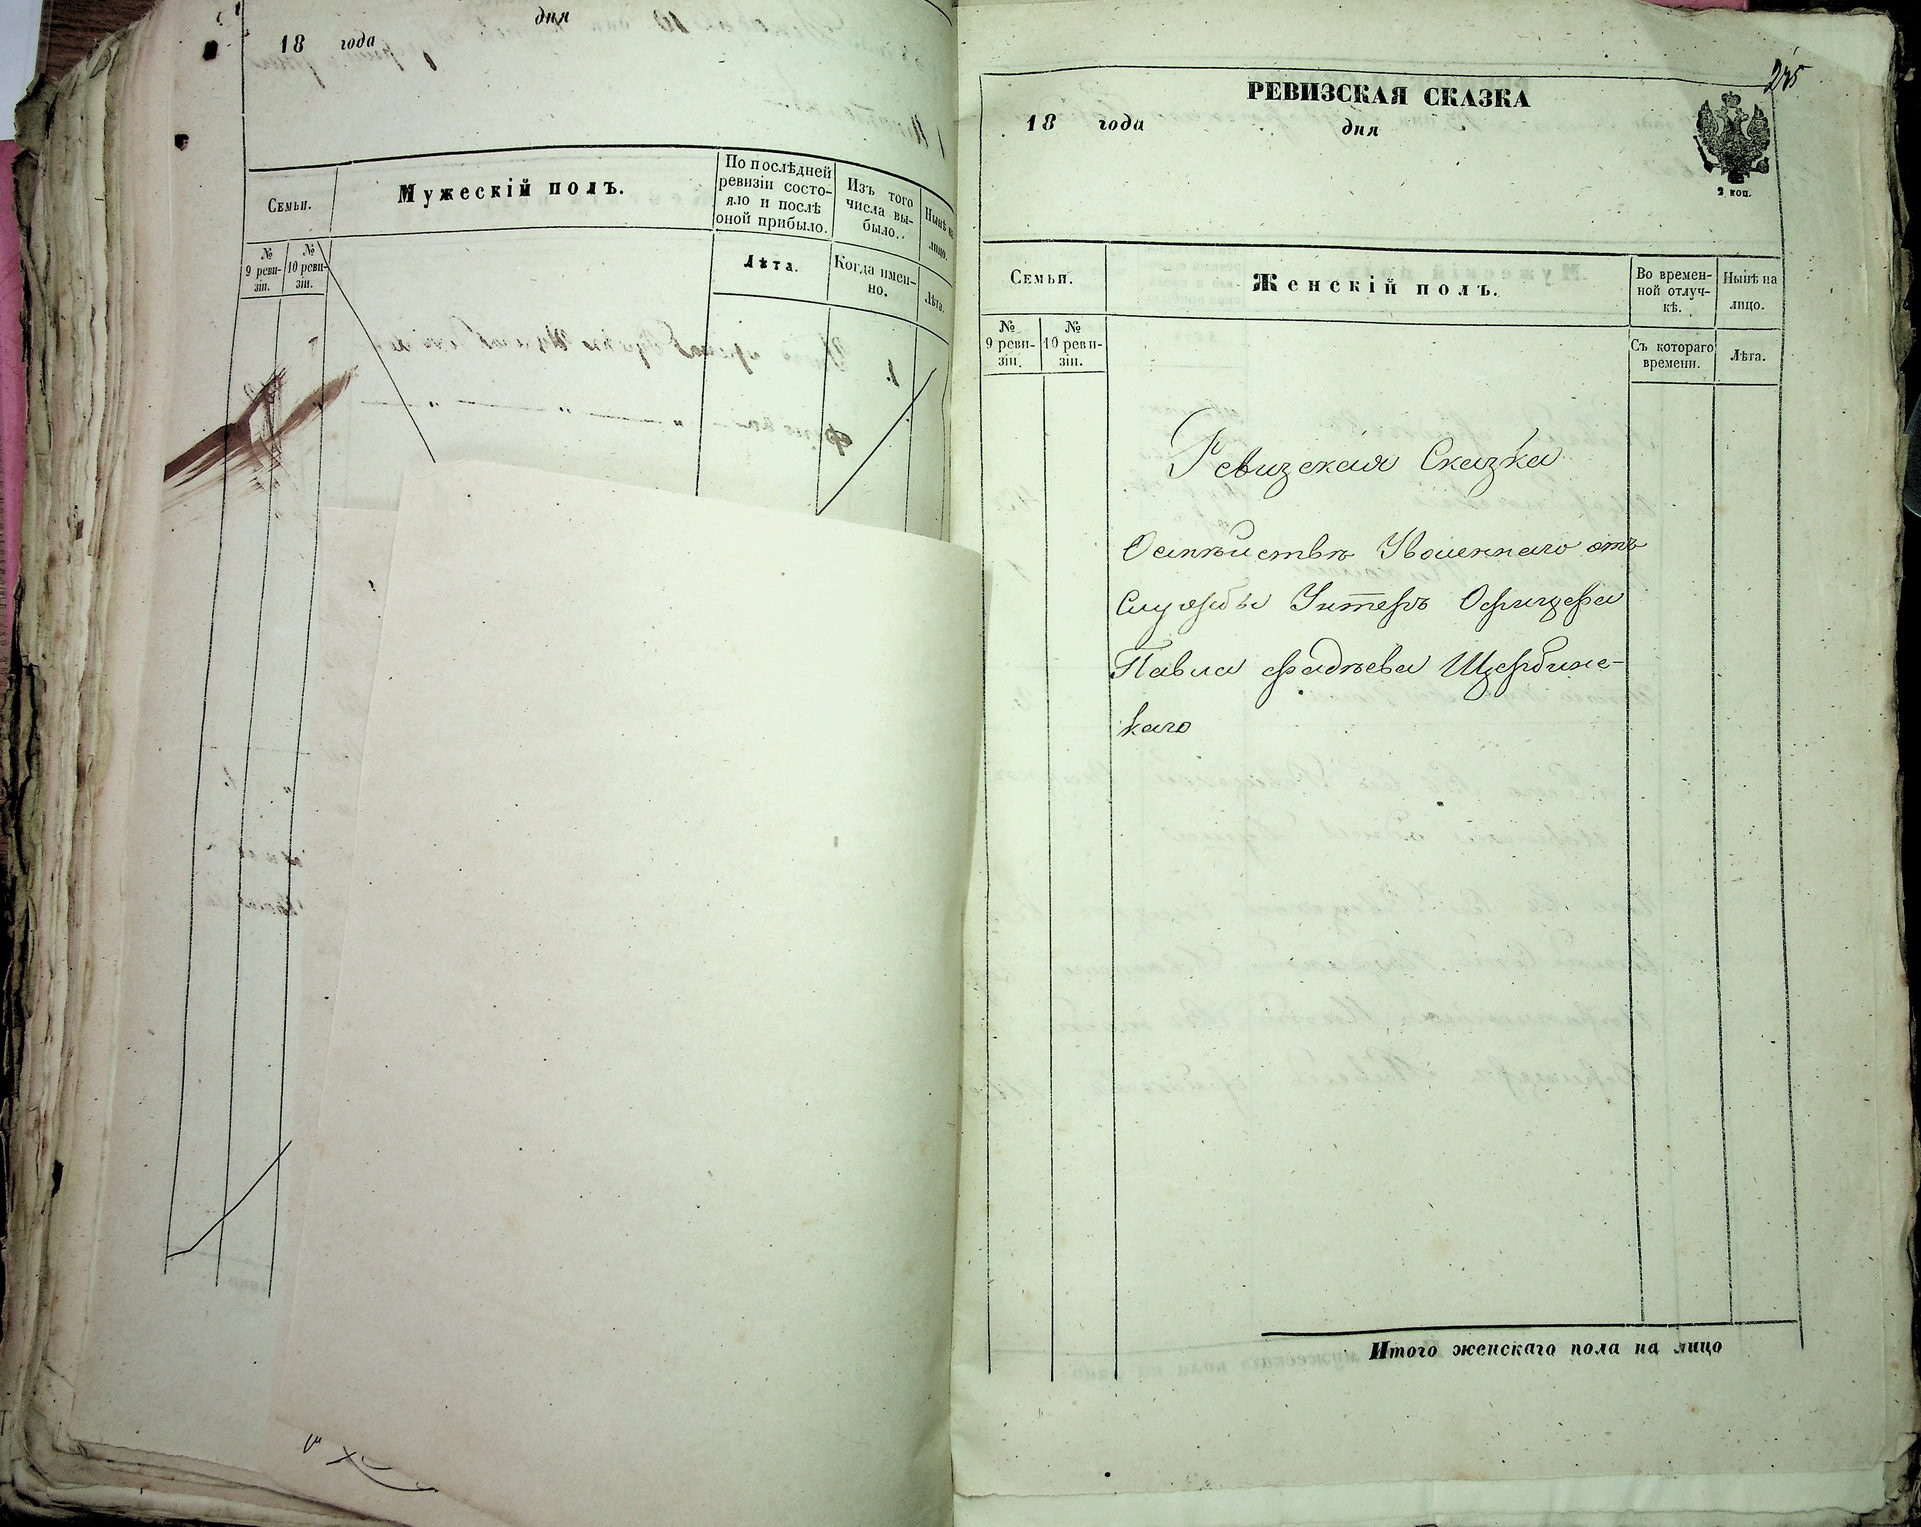 дня
18 года
Семьи.
Мужескій полъ.
По послѣдней
ревизіи состо-
яло и послѣ
оной прибыло.
Изъ того
числа вы-
было.
Нынѣ на
лицо.
№
9 реви-
зіи.
№
10 реви-
зіи.
Лѣта.
Когда имен-
но.
Лѣта.
275
РЕВИЗСКАЯ СКАЗКА
18 года дня
2 коп.
Семьи.
Женскій полъ.
Во времен-
ной отлуч-
кѣ.
Нынѣ на
лицо.
№
9 реви-
зіи.
№
10 реви-
зіи.
Съ котораго
времени.
Лѣта.
Ревизская Сказка
Осемѣйствѣ Уволеннаго отъ
Службы Унтеръ Офицера
Павла Фадѣева Щербинс-
каго
Итого женскаго пола на лицо